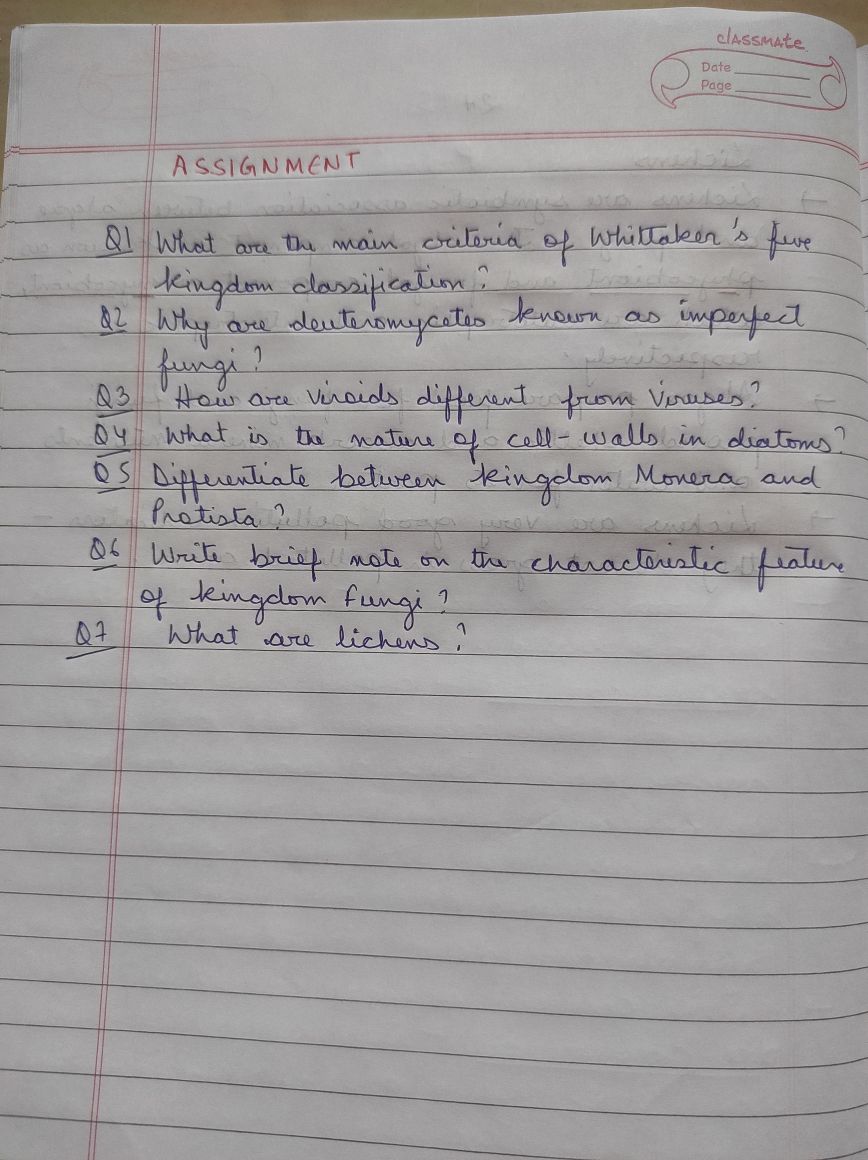 classmate
Date
Page
ASSIGNMENT
Q1 What are the main criteria of Whittaker's five
kingdom classification?
Q2 Why are deuteromycetes known as imperfect
fungi?
Q3 How are viroids different from viruses?
Q4 What is the nature of cell-walls in diatoms?
Q5 Differentiate between kingdom Monera and
Protista?
Q6 Write brief note on the characteristic feature
of kingdom fungi?
Q7 What are lichens?